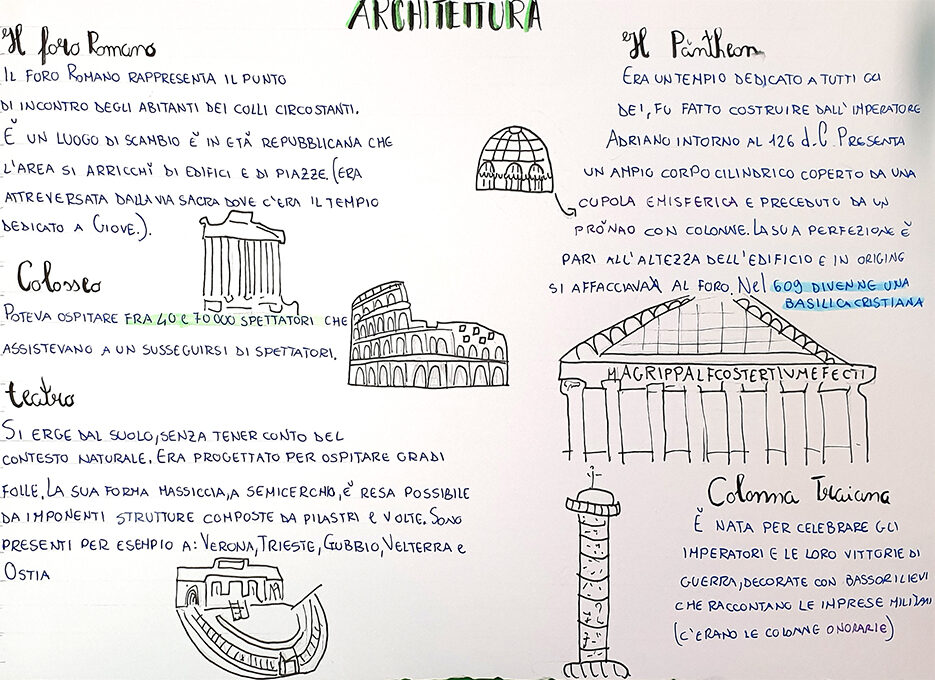 ARCHITETTURA
Il foro Romano
IL FORO ROMANO RAPPRESENTA IL PUNTO
DI INCONTRO DEGLI ABITANTI DEI COLLI CIRCOSTANTI.
È UN LUOGO DI SCAMBIO È IN ETÀ REPUBBLICANA CHE
L'AREA SI ARRICCHÌ DI EDIFICI E DI PIAZZE.(ERA
ATTREVERSATA DALLA VIA SACRA DOVE C'ERA IL TEMPIO
DEDICATO A GIOVE.).
Colosseo
POTEVA OSPITARE FRA 40 e 70000 SPETTATORI CHE
ASSISTEVANO A UN SUSSEGUIRSI DI SPETTATORI.
teatro
SI ERGE DAL SUOLO, SENZA TENER CONTO DEL
CONTESTO NATURALE. ERA PROGETTATO PER OSPITARE GRADI
FOLLE. LA SUA FORMA MASSICCIA, A SEMICERCHO, È RESA POSSIBILE
DA IMPONENTI STRUTTURE COMPOSTE DA PILASTRI E VOLTE. SONO
PRESENTI PER ESEMPIO A: VERONA, TRIESTE, GUBBIO, VELTERRA e
OSTIA
Il Pàntheon
ERA UN TEMPIO DEDICATO A TUTTI GLI
DEI, FU FATTO COSTRUIRE DALL'IMPERATORE
ADRIANO INTORNO AL 126 d.C. PRESENTA
UN AMPIO CORPO CILINDRICO COPERTO DA UNA
CUPOLA EMISFERICA E PRECEDUTO DA UN
PRÒNAO CON COLONNE. LA SUA PERFEZIONE È
PARI ALL'ALTEZZA DELL'EDIFICIO E IN ORIGINE
SI AFFACCIAVA AL FORO. Nel 609 DIVENNE UNA
BASILICA CRISTIANA
MAGRIPPALFCOSTERTIVMEFECTI
Colonna Traiana
È NATA PER CELEBRARE GLI
IMPERATORI E LE LORO VITTORIE DI
GUERRA, DECORATE CON BASSORILIEVI
CHE RACCONTANO LE IMPRESE MILITARI
(C'ERANO LE COLONNE ONORARIE)